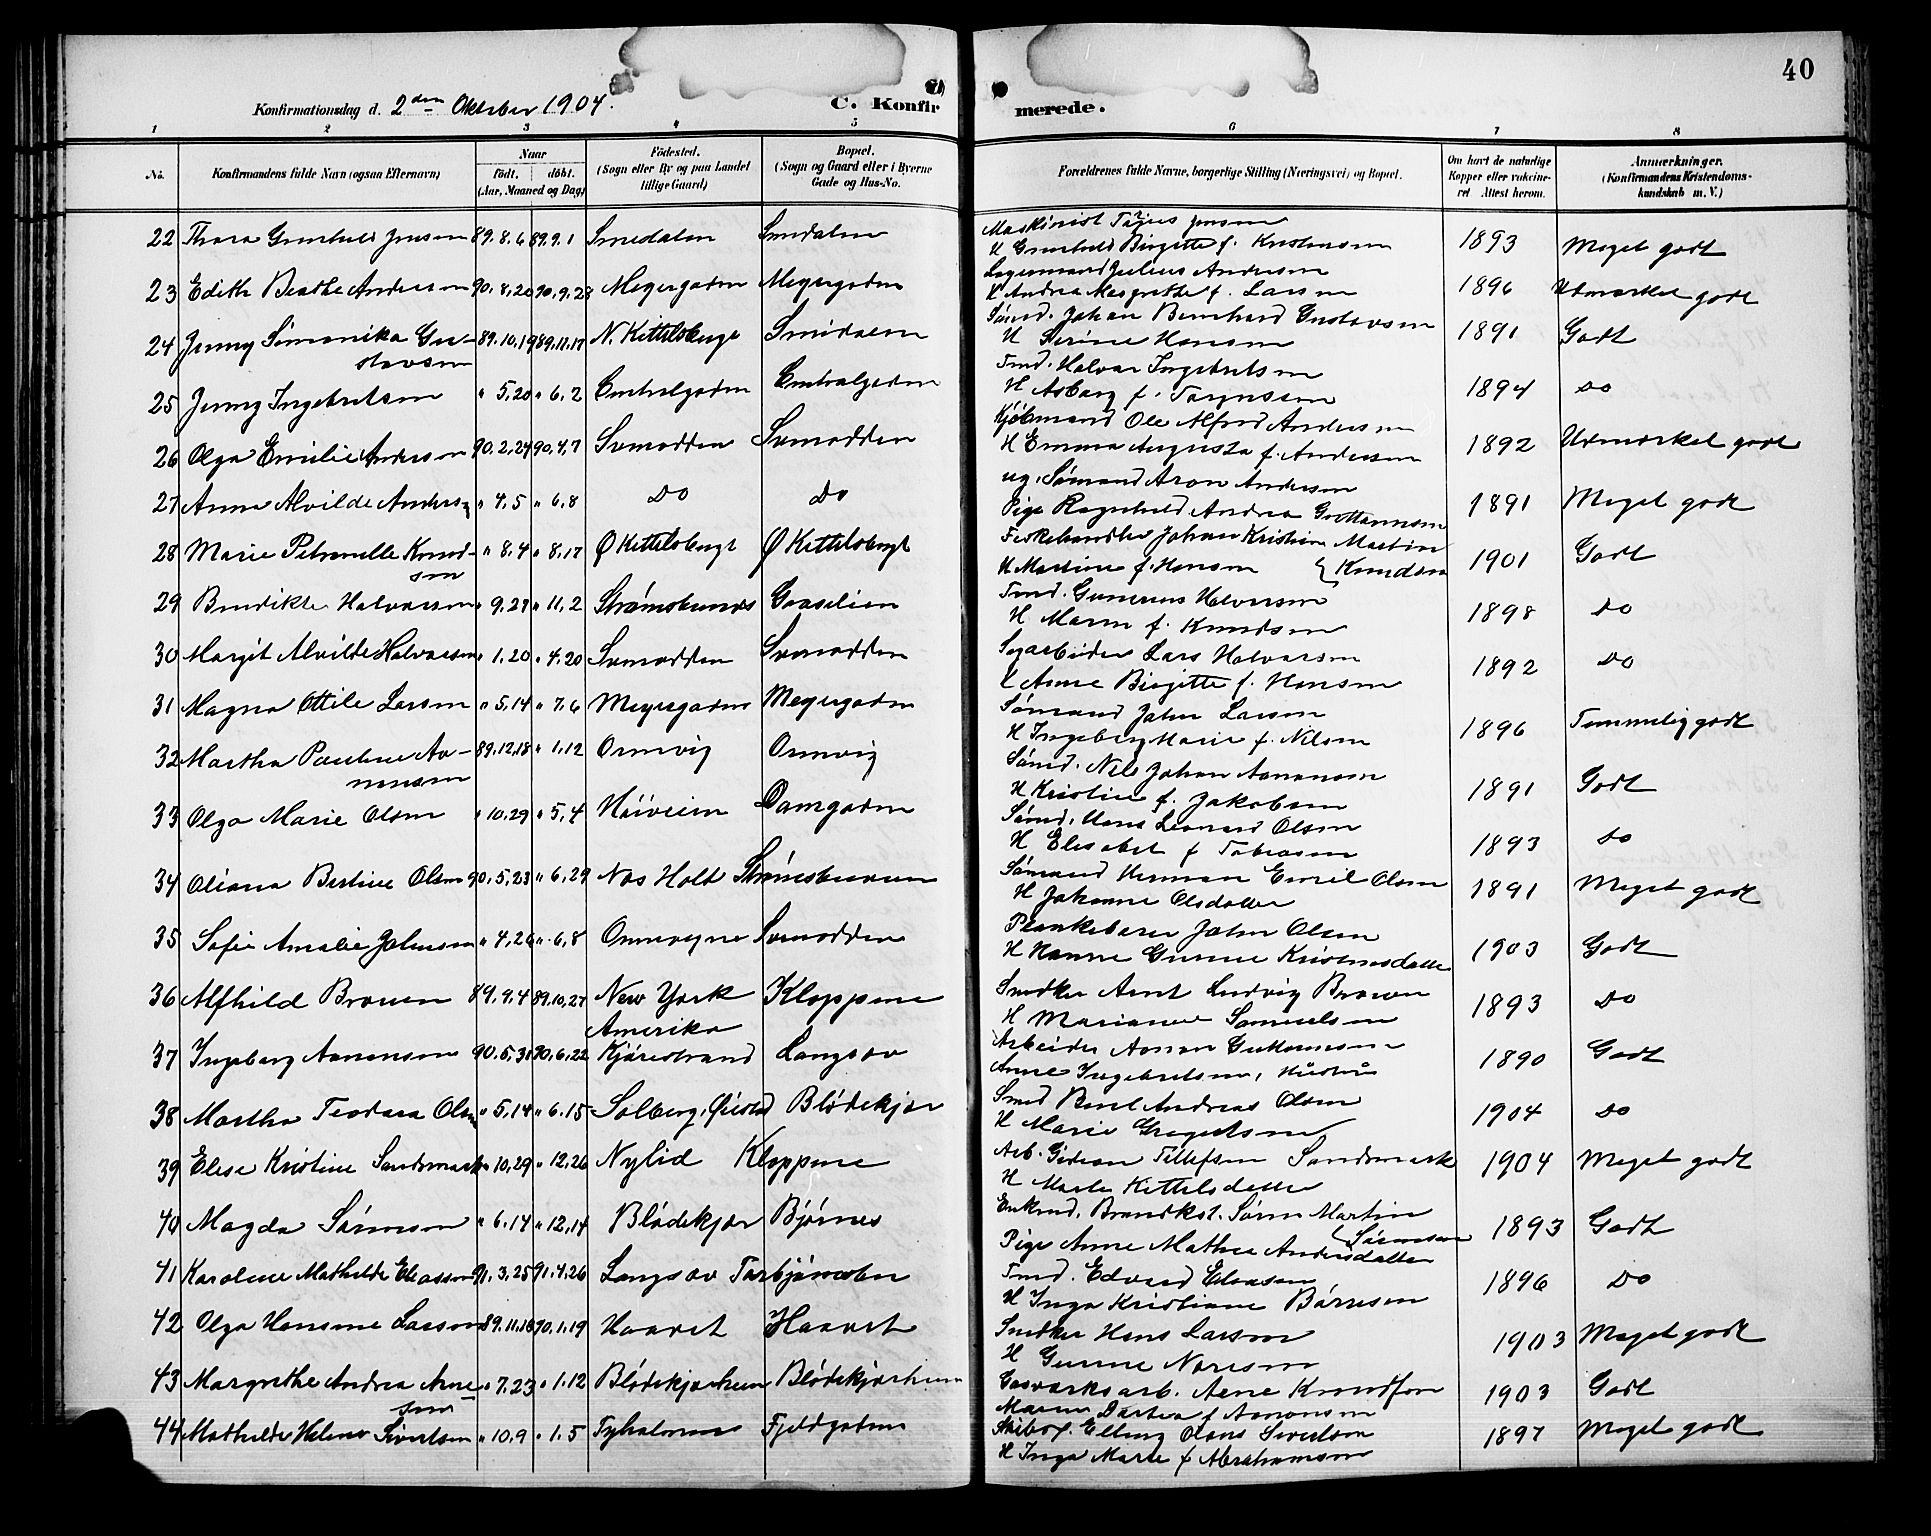 40
Konfirmationsdag d. 2den Oktober 1904.
C. Konfirmerede.
1 2 3 4 5 6 7 8
No. Konfirmandens fulde Navn (ogsaa Efternavn) Naar født. døbt. (Aar, Maaned og Dag) Fødested. (Sogn eller By og paa Landet tillige Gaard) Bopæl. (Sogn og Gaard eller i Byerne Gade og Hus-No. Forældrenes fulde Navne, borgerlige Stilling (Næringsvei) og Bopæl. Om havt de naturlige Kopper eller vakcineret Attest herom. Anmærkninger. (Konfirmandens Kristendomskundskab m. V.)
22 Thora Gunhild Jensen 89.8.6 89.9.1 Smedalen Smedalen Maskinist Jensen
H Gunhild Birgitte f. Kristensen 1893 Meget godt
23 Edith Beathe Andersen 90.8.20 90.9.28 Meyergaden Meyergaden Lagermand Julius Andersen
H Andrea Margrethe f. Larsen 1896 Udmærket godt
24 Jenny Simonika Gustavsen 89.10.19 89.11.17 N. Kittelsbugt Smidalen Sømd. Johan Bernhard Gustavsen
H Serine Hansen 1891 Godt
25 Jenny Ingebretsen " 5.20 " 6.2 Centralgaden Centralgaden Tmd. Halvor Ingebretsen
H Asborg f. 1894 do
26 Olga Emilie Andersen 90.2.24 90.4.7 Svinodden Svinodden Kjøbmand Ole Alfred Andersen
H Emma Augusta f. Andersen 1892 Udmærket godt
27 Anna Alvilde Anders " 4.5 " 6.8 do do ug. Sømand Aron Andersen
Pige Ragnhild Andrea Guttormsen 1891 Meget godt
28 Marie Petronelle Knudsen " 8.4 " 8.17 Ø Kittelsbugt Ø Kittelsbugt Fiskehandler Johan Kristian Martin
H Martine f. Hansen { Knudsen 1901 Godt
29 Bendikte Halvorsen " 9.27 " 11.2 Strømsbunes Gaaselien Tmd. Gunerius Halvorsen
H Maren f. Knudsen 1898 do
30 Margit Alvilde Halvorsen " 1.20 " 4.20 Svinodden Svinodden Sagarbeider Lars Halvorsen
H Anne Birgitte f. Hansen 1892 do
31 Magna Ottile Larsen " 5.14 " 7.6 Meyergaden Meyergaden Sømand John Larsen
H Ingeborg Marie f. Nilsen 1896 Temmelig godt
32 Martha Pauline Aanensen 89.12.18 " 1.12 Ormvig Ormvig Sømd. Nils Johan Aanensen
H Kristine f. Jakobsen 1891 Godt
33 Olga Marie Olsen " 10.29 " 5.4 Høiveien Damgaden Sømd. Hans Leonard Olsen
H Elisabet f Tobiasen 1893 do
34 Oliana Bertine Olsen 90.5.23 " 6.29 Næs Holt Strømsbunen Sømand Herman Emil Olsen
H Johanne Olsdatter 1891 Meget godt
35 Sofie Amalie Johnsen " 4.26 " 6.8 Svinodden Plankebærer John Olsen
H Hanne Gurine Kristensdatter 1903 Godt
36 Alfhild Brovn 89.9.4 89.10.27 New York
Amerika Kloppene Snedker Arnt Ludvig Brovn
H Mariane Samuelsen 1893 do
37 Ingeborg Aanonsen 90.5.31 90.6.22 Kjørestrand Langsæv Arbeider Aanon Guttormsen
Anne Ingebretsen, Hustru 1890 Godt
38 Martha Teodora Olsen " 5.14 " 6.15 Solberg, Øiestad Blødekjær Smed Bent Andreas Olsen
H Marie Gregertsen 1904 do
39 Elise Kristine Sandsmark " 10.29 " 12.26 Nylid Kloppene Arb. Gideon Tellefsen Sandsmark
H Marte Kittelsdatter 1904 Meget godt
40 Magda Sørensen " 6.14 " 12.14 Blødekjær Bjørnes Enkemd. Brandkst. Søren Martin
Pige Anne Mathea Andersdatter { Sørensen 1893 Godt
41 Karoline Mathilde Eliassen 91.3.25 91.4.26 Langsæv Torbjørnsbu Tmd. Edvard Eliasen
H Inga Kristiane Børresen 1896 do
42 Olga Hansine Larsen 89.11.18 90.1.19 Haavet Haavet Snedker Hans Larsen
H Gurine 1903 Meget godt
43 Margrethe Andrea Arnesen " 7.23 " 1.12 Blødekjærheien Blødekjærheien Gasværksarb. Arne Knudsen
Maren Dortea f Aanonsen 1903 Godt
44 Mathilde Helene Sivertsen " 10.9 " 1.5 Tyholmen Fjeldgaden Skibsf. Elling Olaus Sivertsen
H Inga Marie f Abrahamsen 1897 Meget godt